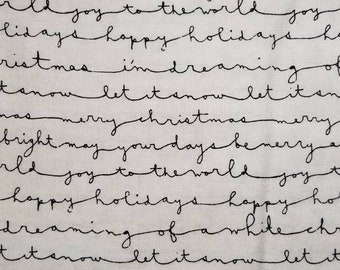 rld joy to the world joy
lidays happy holidays ha
christmas i'm dreaming of
snow let it snow let it s
mas merry christmas merry
bright may your days be merry a
rld joy to the world joy to
happy holidays happy hol
dreaming of a white chris
t it snow let it snow let it